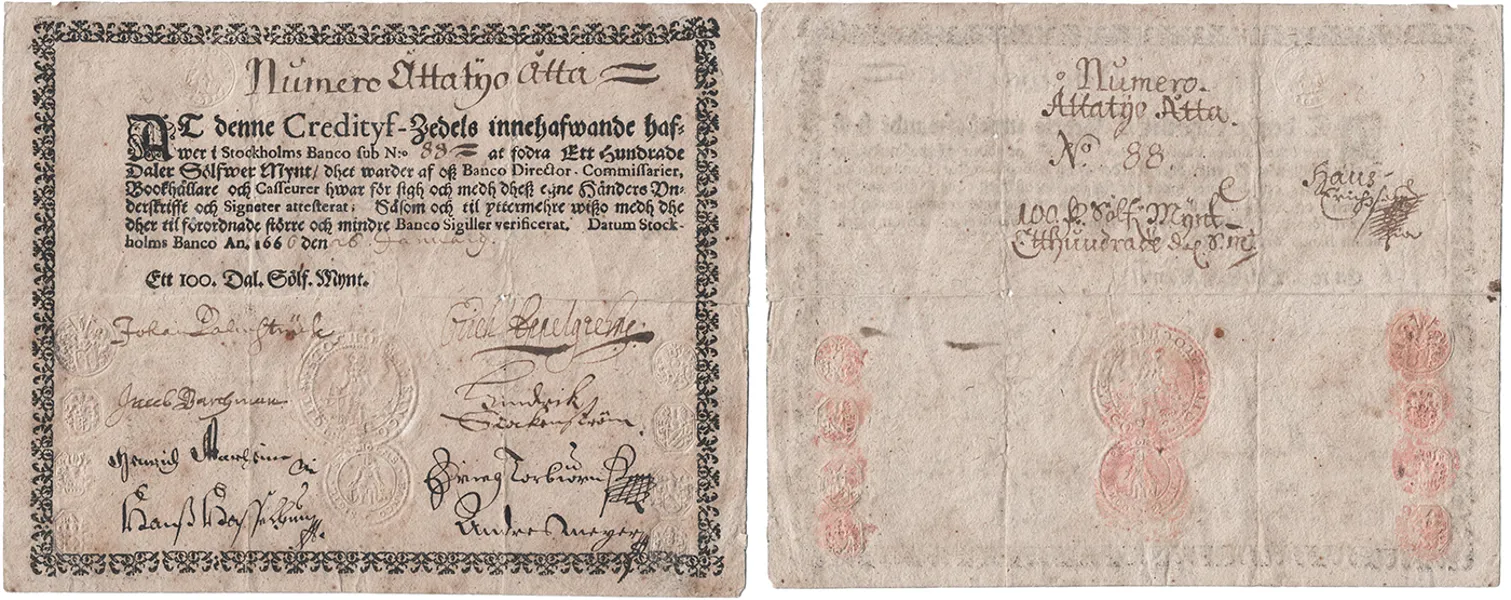 Numero Åttatÿo Åtta
AT denne Credityf-Zedels innehafwande haf-
wer i Stockholms Banco sub N:o 88 at fodra Ett Hundrade
Daler Sölfwer Mynt/ dhet warder af oß Banco Director. Commissarier,
Bookhållare och Casseurer hwar för sigh och medh dheß egne Händers Vn-
derskrifft och Signeter attesterat; Såsom och til yttermehre wißo medh dhe
dher til förordnade större och mindre Banco Sigiller verificerat. Datum Stock-
holms Banco An. 1666 den 26 Januarij.
Ett 100. Dal. Sölf. Mynt.
Johan Palmstruch
Jacob
Hindrich
Stockenström
Henrich
Torbiörn
Hanß
Andres Meyer
Numero.
Åttatÿo Åtta.
No 88.
100 Sölf. Mÿnt
Etthundrade S. Mt